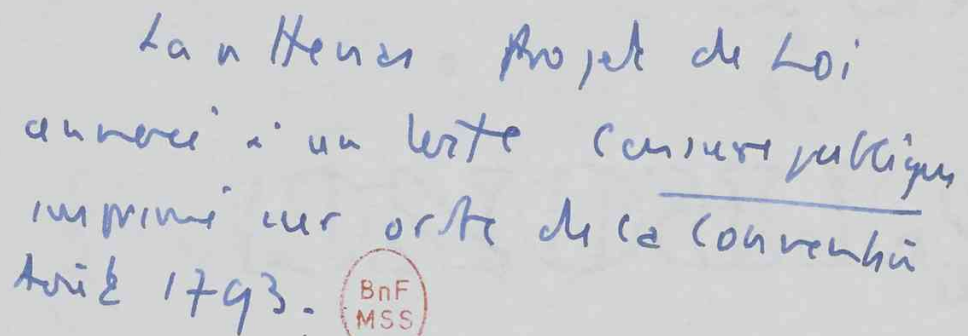 Lanthenas Projet de Loi
annexé à un texte Censure publique
imprimé sur ordre de la Convention
Août 1793.
BnF
MSS